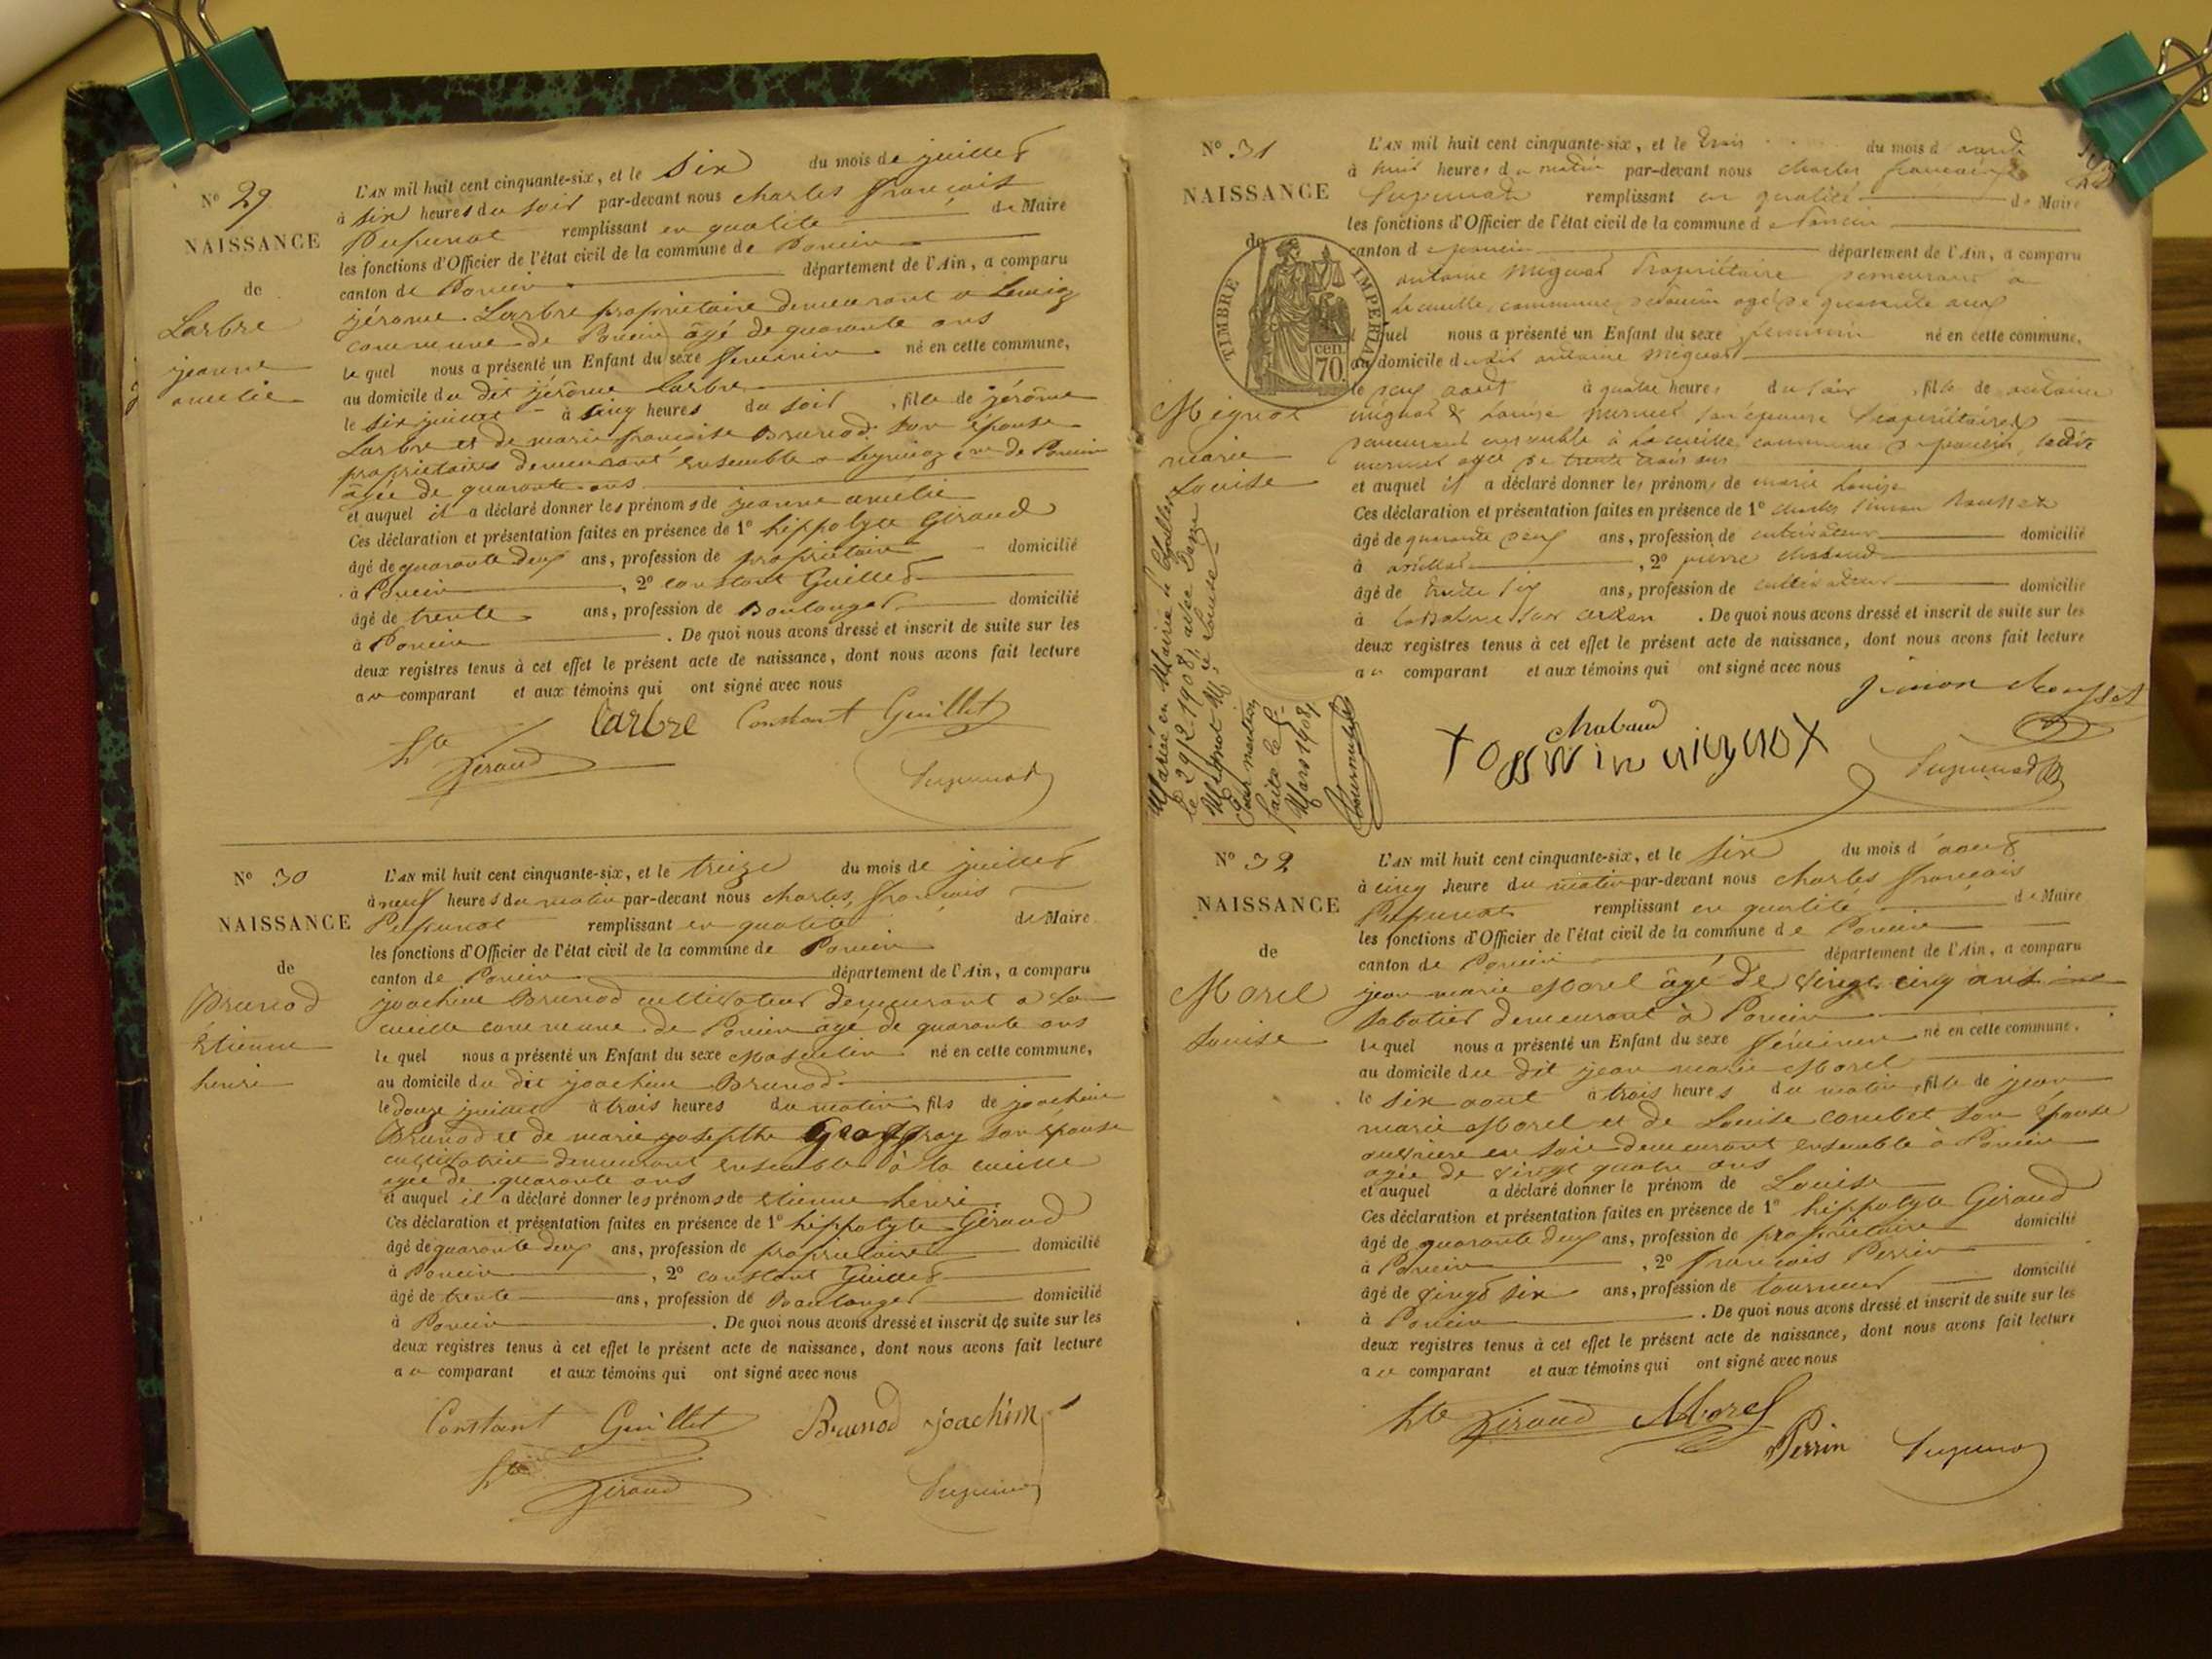 N° 29
NAISSANCE
de
Larbre
jeanne
amélie
L'AN mil huit cent cinquante-six, et le six du mois de juillet
à six heures du soir par-devant nous charles françois
remplissant en qualité de Maire
les fonctions d'Officier de l'état civil de la commune de Poncin
canton de Poncin département de l'Ain, a comparu
jérome Larbre propriétaire demeurant a
commune de Poncin âgé de quarante ans
le quel nous a présenté un Enfant du sexe feminin né en cette commune,
au domicile du dit jérôme Larbre
le six juillet à cinq heures du soir, fille de jérôme
Larbre et de marie françoise Brunod son épouse
propriétaires demeurant ensemble a de Poncin
âgée de quarante ans
et auquel il a déclaré donner les prénoms de jeanne amélie
Ces déclaration et présentation faites en présence de 1° hippolyte Giraud
âgé de quarante deux ans, profession de propriétaire domicilié
à Poncin, 2° constant Guillet
âgé de trente ans, profession de Boulanger domicilié
à Poncin. De quoi nous avons dressé et inscrit de suite sur les
deux registres tenus à cet effet le présent acte de naissance, dont nous avons fait lecture
au comparant et aux témoins qui ont signé avec nous
larbre Constant Guillet
hte Giraud
N° 30
NAISSANCE
de
Brunod
Etienne
henri
L'AN mil huit cent cinquante-six, et le treize du mois de juillet
à neuf heures du matin par-devant nous charles françois
remplissant en qualité de Maire
les fonctions d'Officier de l'état civil de la commune de Poncin
canton de Poncin département de l'Ain, a comparu
joachim Brunod cultivateur demeurant a La
cueille commune de Poncin âgé de quarante ans
le quel nous a présenté un Enfant du sexe Masculin né en cette commune,
au domicile du dit joachim Brunod
le douze juillet à trois heures du matin, fils de joachim
Brunod et de marie josephte son épouse
cultivatrice demeurant ensemble à la cueille
agée de quarante ans
et auquel il a déclaré donner les prénoms de etienne henri
Ces déclaration et présentation faites en présence de 1° hippolyte Giraud
âgé de quarante deux ans, profession de propriétaire domicilié
à Poncin, 2° constant Guillet
âgé de trente ans, profession de Boulanger domicilié
à Poncin. De quoi nous avons dressé et inscrit de suite sur les
deux registres tenus à cet effet le présent acte de naissance, dont nous avons fait lecture
au comparant et aux témoins qui ont signé avec nous
Constant Guillet Brunod joachim
hte Giraud
N° 31
NAISSANCE
de
TIMBRE IMPERIAL
70 cen
Mignot
marie
Louise
Marié en Mairie à
le 29/2 1908, avec
Mignot Mie Louise
Pour mention
faite le
Mars 1908,
L'AN mil huit cent cinquante-six, et le trois du mois d août
à huit heures du matin par-devant nous charles françois
remplissant en qualité de Maire
les fonctions d'Officier de l'état civil de la commune de Poncin
canton de poncin département de l'Ain, a comparu
antoine mignot Propriétaire demeurant a
La cueille, commune de Poncin agé de quarante ans
lequel nous a présenté un Enfant du sexe feminin né en cette commune,
au domicile du dit antoine mignot
le deux août à quatre heures du soir, fille de antoine
mignot & Louise mermet son épouse Propriétaires
demeurant ensemble à La cueille commune de poncin, ladite
mermet agée de trente trois ans
et auquel il a déclaré donner les prénoms de marie Louise
Ces déclaration et présentation faites en présence de 1° charles simon
âgé de quarante ans, profession de cultivateur domicilié
à, 2° pierre chabaud
âgé de trente six ans, profession de cultivateur domicilié
à. De quoi nous avons dressé et inscrit de suite sur les
deux registres tenus à cet effet le présent acte de naissance, dont nous avons fait lecture
au comparant et aux témoins qui ont signé avec nous
Simon
Chabaud
N° 32
NAISSANCE
de
Morel
Louise
L'AN mil huit cent cinquante-six, et le six du mois d'août
à cinq heure du matin par-devant nous charles françois
remplissant en qualité de Maire
les fonctions d'Officier de l'état civil de la commune de Poncin
canton de Poncin département de l'Ain, a comparu
jean marie Morel âgé de vingt cinq ans
sabotier demeurant à Poncin
lequel nous a présenté un Enfant du sexe féminin né en cette commune,
au domicile du dit jean marie Morel
le six aout à trois heures du matin, fille de jean
marie Morel et de Louise combet son épouse
ouvriere en soie demeurant ensemble à Poncin
agée de vingt quatre ans
et auquel a déclaré donner le prénom de Louise
Ces déclaration et présentation faites en présence de 1° hippolyte Giraud
âgé de quarante deux ans, profession de propriétaire domicilié
à Poncin, 2° françois Perrin
âgé de vingt six ans, profession de tourneur domicilié
à Poncin. De quoi nous avons dressé et inscrit de suite sur les
deux registres tenus à cet effet le présent acte de naissance, dont nous avons fait lecture
au comparant et aux témoins qui ont signé avec nous
hte Giraud Morel
Perrin